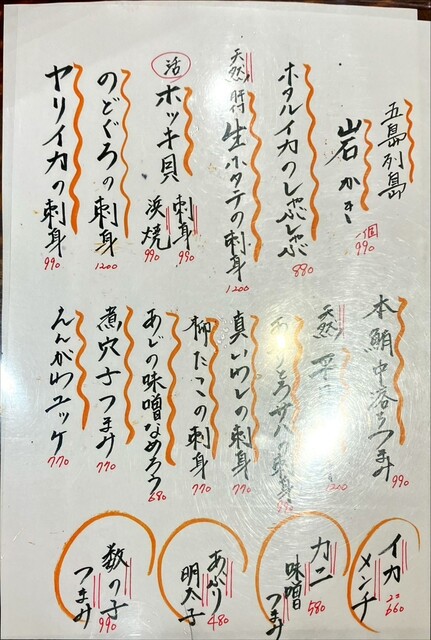 五島列島
岩かき
一個
990
ホタルイカのしゃぶしゃぶ
880
天然
肝付
生ホタテの刺身
1200
活
ホッキ貝
刺身
990
浜焼
990
のどぐろの刺身
1200
ヤリイカの刺身
990
本鮪中落ちつまみ
990
天然
平
1200
とろサバの刺身
真いわしの刺身
770
柳たこの刺身
770
あじの味噌なめろう
680
煮穴子つまみ
770
えんがわユッケ
770
イカ
メンチ
2コ
660
カニ
味噌
つまみ
580
あぶり
明太子
480
数の子
つまみ
990